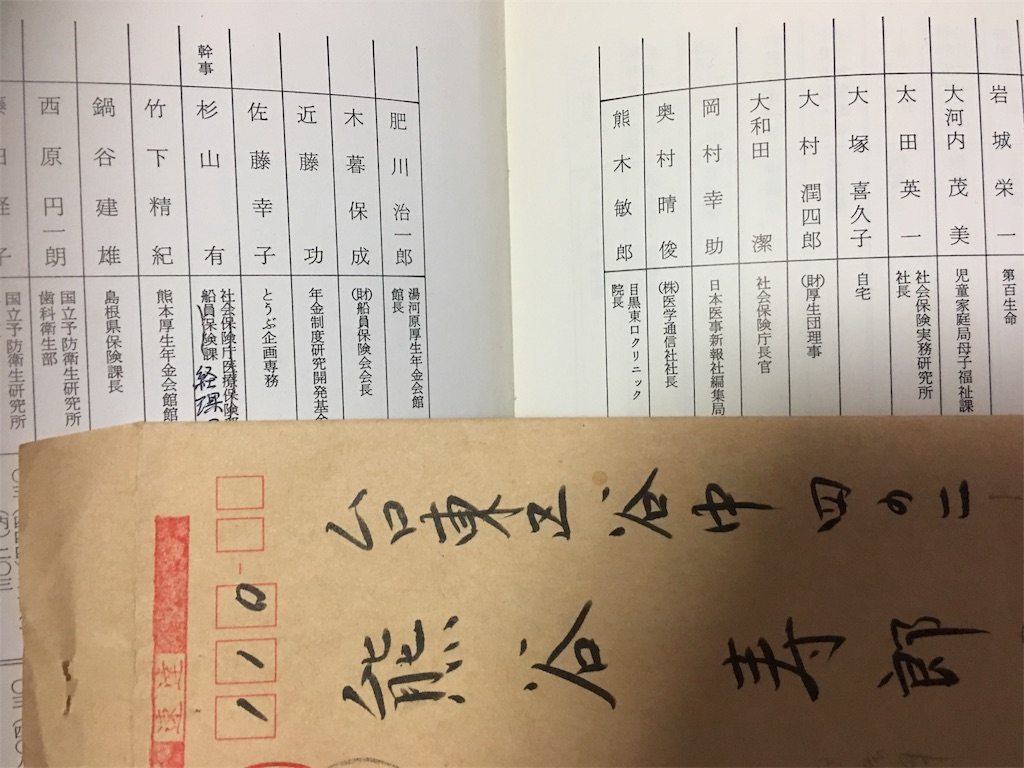 岩城栄一 第百生命
大河内茂美 児童家庭局母子福祉課
太田英一 社会保険実務研究所
社長
大塚喜久子 自宅
大村潤四郎 (財)厚生団理事
大和田潔 社会保険庁長官
岡村幸助 日本医事新報社編集局
奥村晴俊 (株)医学通信社社長
熊木敏郎 目黒東口クリニック
院長
肥川治一郎 湯河原厚生年金会館
館長
木暮保成 (財)船員保険会会長
近藤功 年金制度研究開発基金
佐藤幸子 とうぶ企画専務
幹事 杉山有 社会保険庁医療保険部
船員保険課 経理
竹下精紀 熊本厚生年金会館館
鍋谷建雄 島根県保険課長
西原円一朗 国立予防衛生研究所
歯科衛生部
国立予防衛生研究所
速達
110
台東区谷中四の二
熊谷寿郎